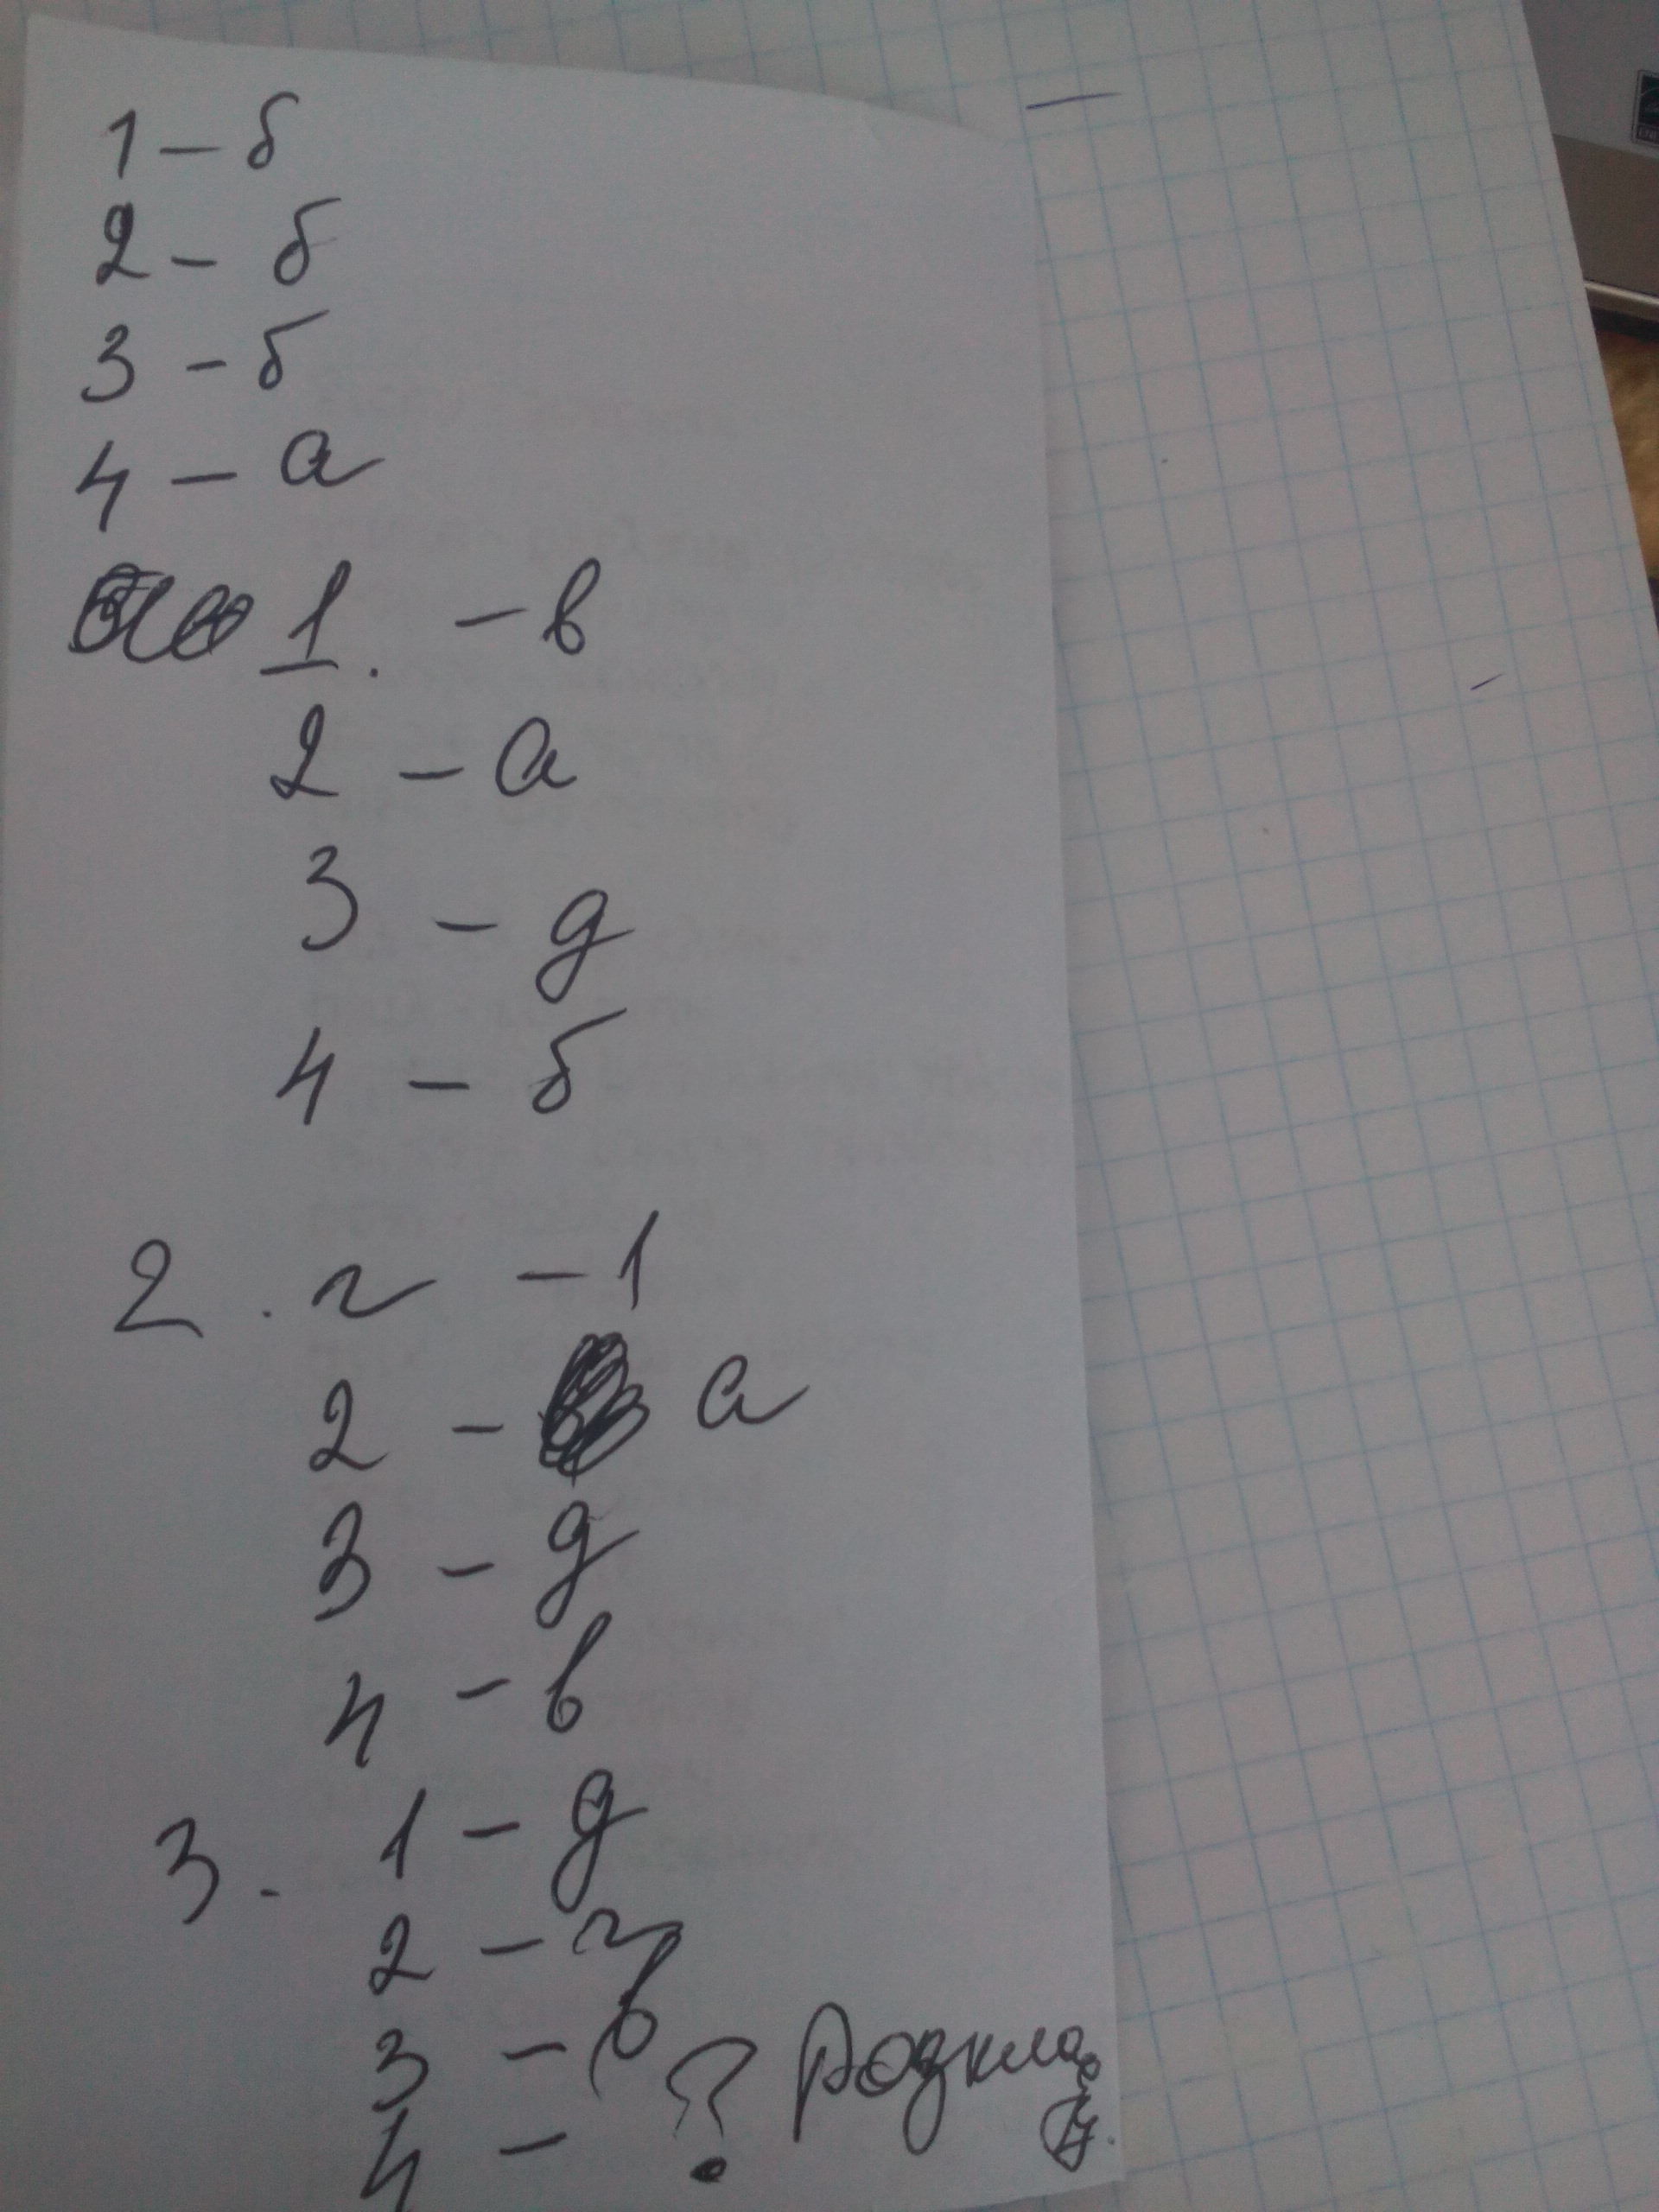 1 – б
2 – б
3 – б
4 – а
1. – в
2 – а
3 – д
4 – б
2. г – 1
2 – а
3 – д
4 – в
3. 1 – д
2 – г
3 – в
4 – ?